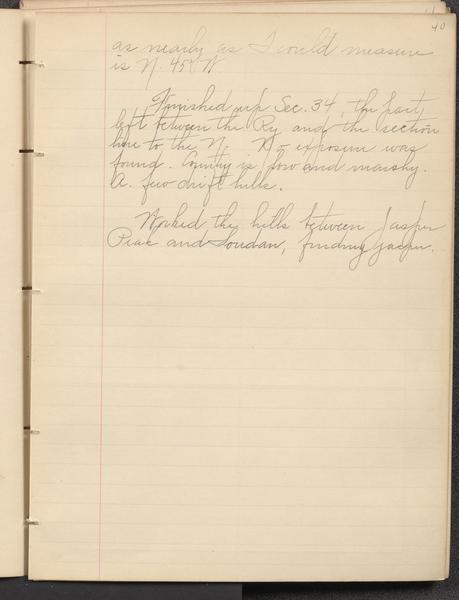 40
as nearly as I could measure
is N. 45° W
Finished up Sec. 34, the part
left between the Ry. and the section
line to the N. No exposure was
found. Country is low and marshy.
A few drift hills.
Worked the hills between Jasper
Peak and Soudan, finding jasper.